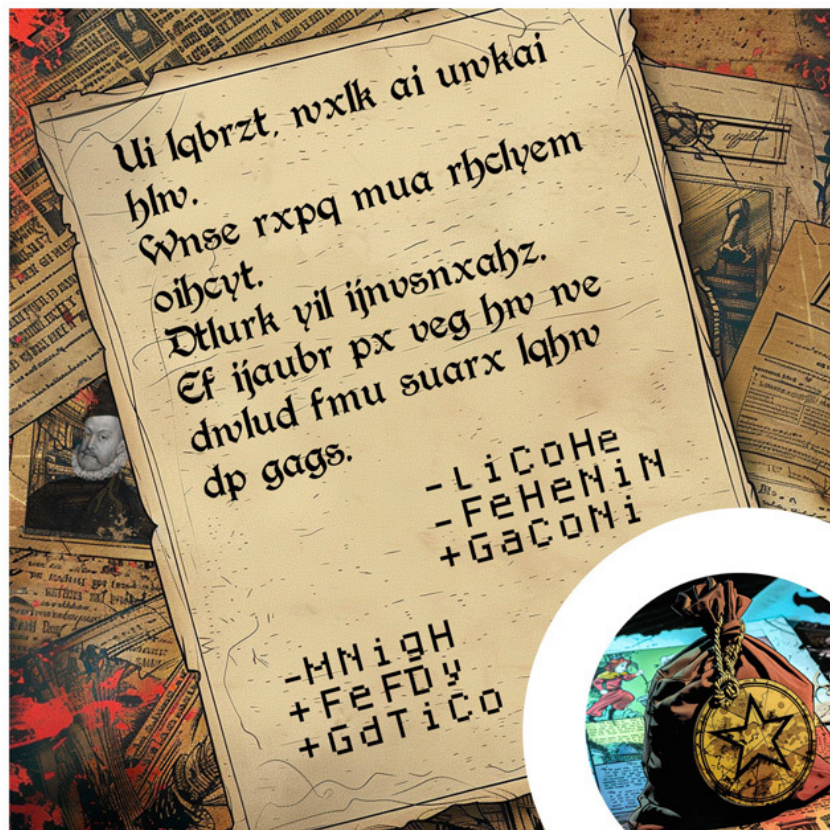 Ui lqbrzt, wxlk ai uwkai
hlw.
Wnse rxpq mua rhclyem
oihcyt.
Dtlurk yil ijnvsnxahz.
Ef ijaubr px veg hw we
dwlud fmu suarx lqhw
dp gags.
-LiCoHe
-FeHeNiN
+GaCoNi
-MNigH
+FeFDy
+GdTiCo